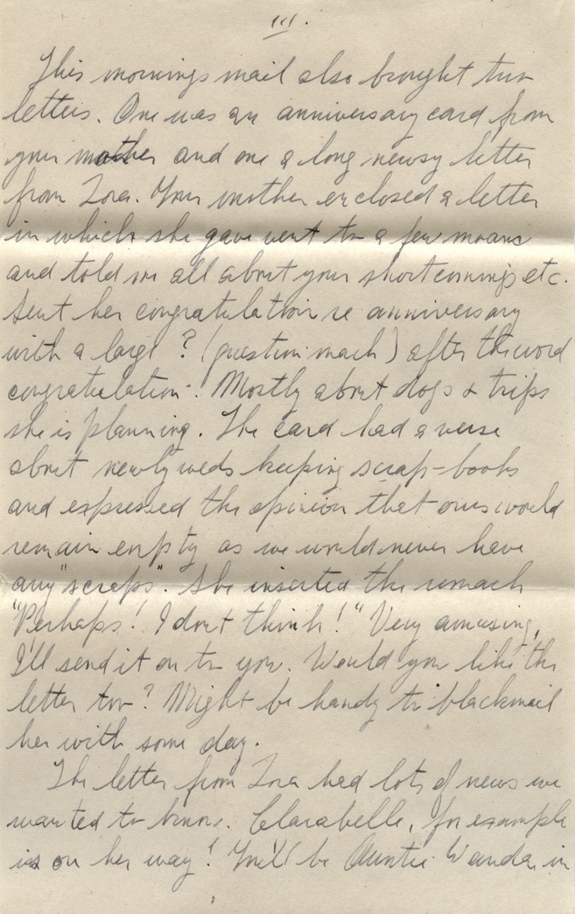 III.
This mornings mail also brought two
letters. One was an anniversary card from
your mother and one a long newsy letter
from Zora. Your mother enclosed a letter
in which she gave vent to a few moans
and told me all about your shortcomings etc.
Sent her congratulation re anniversary
with a large ? (question mark) after the word
congratulation! Mostly about dogs & trips
she is planning. The card had a verse
about newly weds keeping scrap-books
and expressed the opinion that ours would
remain empty as we would never have
any "scraps". She inserted the remark
"Perhaps! I don't think!" Very amusing,
I'll send it on to you. Would you like the
letter too? Might be handy to blackmail
her with some day.
The letter from Zora had lots of news we
wanted to know. Clarabelle, for example
is on her way! You'll be Auntie Wanda in